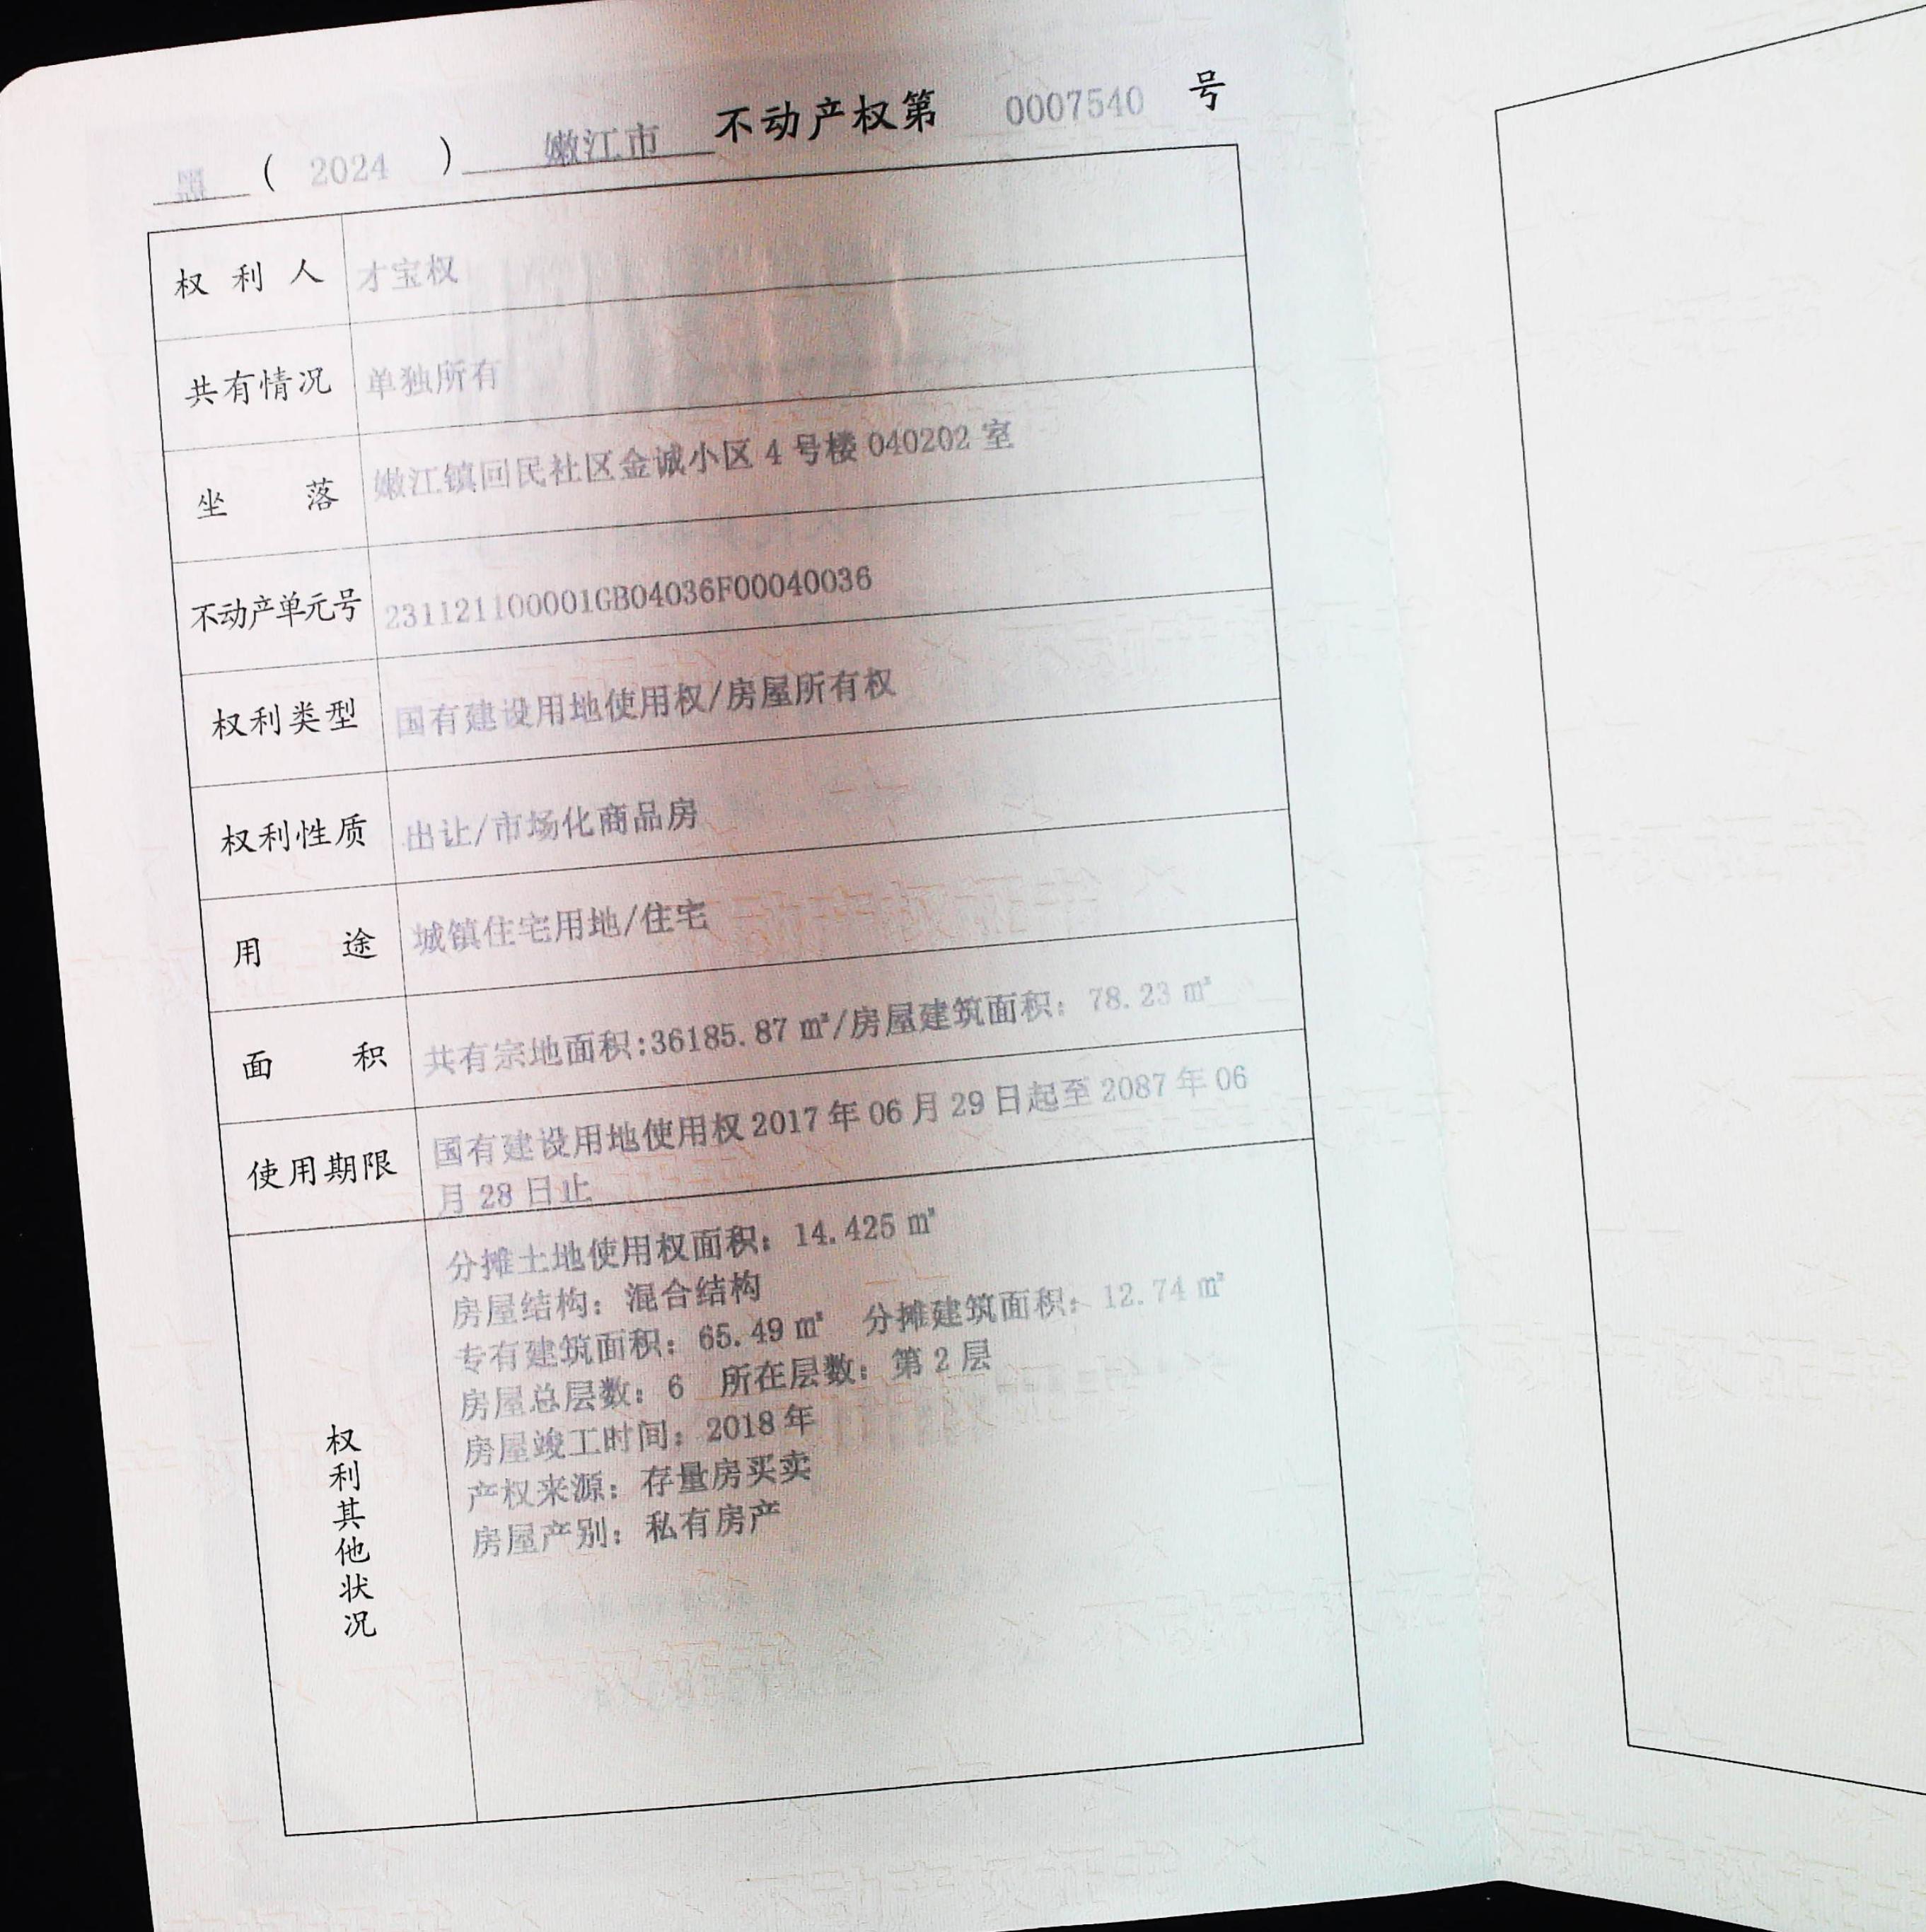 黑 ( 2024 ) 嫩江市 不动产权第 0007540 号
权利人 才宝权
共有情况 单独所有
坐落 嫩江镇回民社区金诚小区4号楼040202室
不动产单元号 231121100001GB04036F00040036
权利类型 国有建设用地使用权/房屋所有权
权利性质 出让/市场化商品房
用途 城镇住宅用地/住宅
面积 共有宗地面积:36185.87㎡/房屋建筑面积：78.23㎡
使用期限 国有建设用地使用权2017年06月29日起至2087年06
月28日止
权利其他状况
分摊土地使用权面积：14.425㎡
房屋结构：混合结构
专有建筑面积：65.49㎡ 分摊建筑面积：12.74㎡
房屋总层数：6 所在层数：第2层
房屋竣工时间：2018年
产权来源：存量房买卖
房屋产别：私有房产